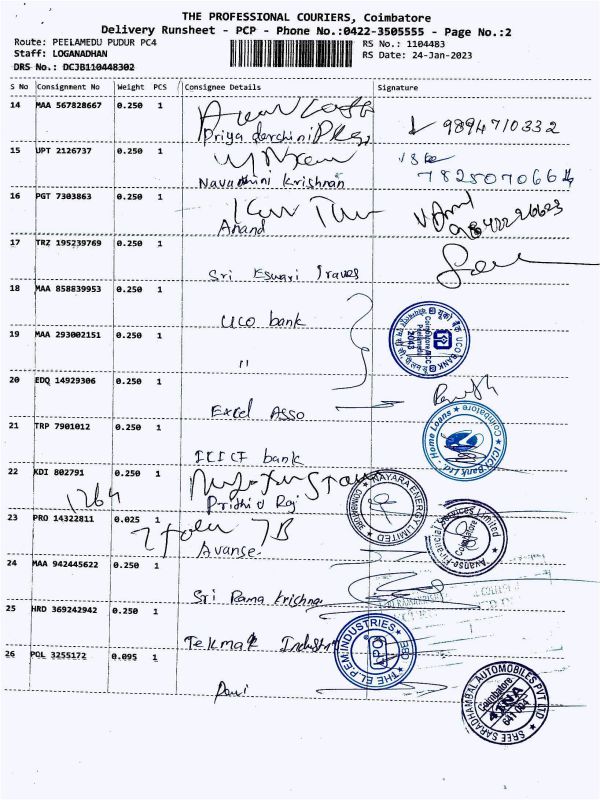 THE PROFESSIONAL COURIERS, Coimbatore
Delivery Runsheet - PCP - Phone No.:0422-3505555 - Page No.:2
Route: PEELAMEDU PUDUR PC4
RS No.: 1104483
Staff: LOGANADHAN
RS Date: 24-Jan-2023
DRS No.: DCJB110448302
S No Consignment No Weight PCS Consignee Details Signature
14 MAA 567828667 0.250 1
Priya darchini
9894710332
15 UPT 2126737 0.250 1
Navadhini Krishnan
7825070664
16 PGT 7303863 0.250 1
Anand
17 TRZ 195239769 0.250 1
Sri Eswari Traves
18 MAA 858839953 0.250 1
UCO bank
UCO BANK
19 MAA 293002151 0.250 1
"
20 EDQ 14929306 0.250 1
Excel Asso
21 TRP 7901012 0.250 1
ICICI bank
ICICI Bank Ltd. Home Loans Coimbatore
22 KDI 802791 0.250 1
Prithiv Raj
1264
NAYARA ENERGY LIMITED COIMBATORE
23 PRO 14322811 0.025 1
Avanse
Avanse Financial Services Limited Coimbatore
24 MAA 942445622 0.250 1
Sri Rama Krishna
25 HRD 369242942 0.250 1
Tekmak Industri
THE EL.P.EM.INDUSTRIES
26 POL 3255172 0.095 1
Ravi
SREE SARADHAMBAL AUTOMOBILES PVT LTD
Coimbatore
641 004